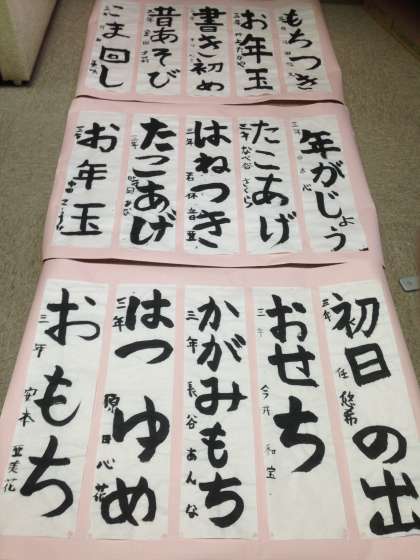 もちつき
お年玉
書き初め
昔あそび
こま回し
年がじょう
三年
たこあげ
三年 なべ谷 さくら
はねつき
三年 若林
たこあげ
三年
お年玉
三年
初日の出
三年 任 悠希
おせち
三年 今井 和宝
かがみもち
三年 長谷 あんな
はつゆめ
三年 原田 心花
おもち
三年 安本 亜美花